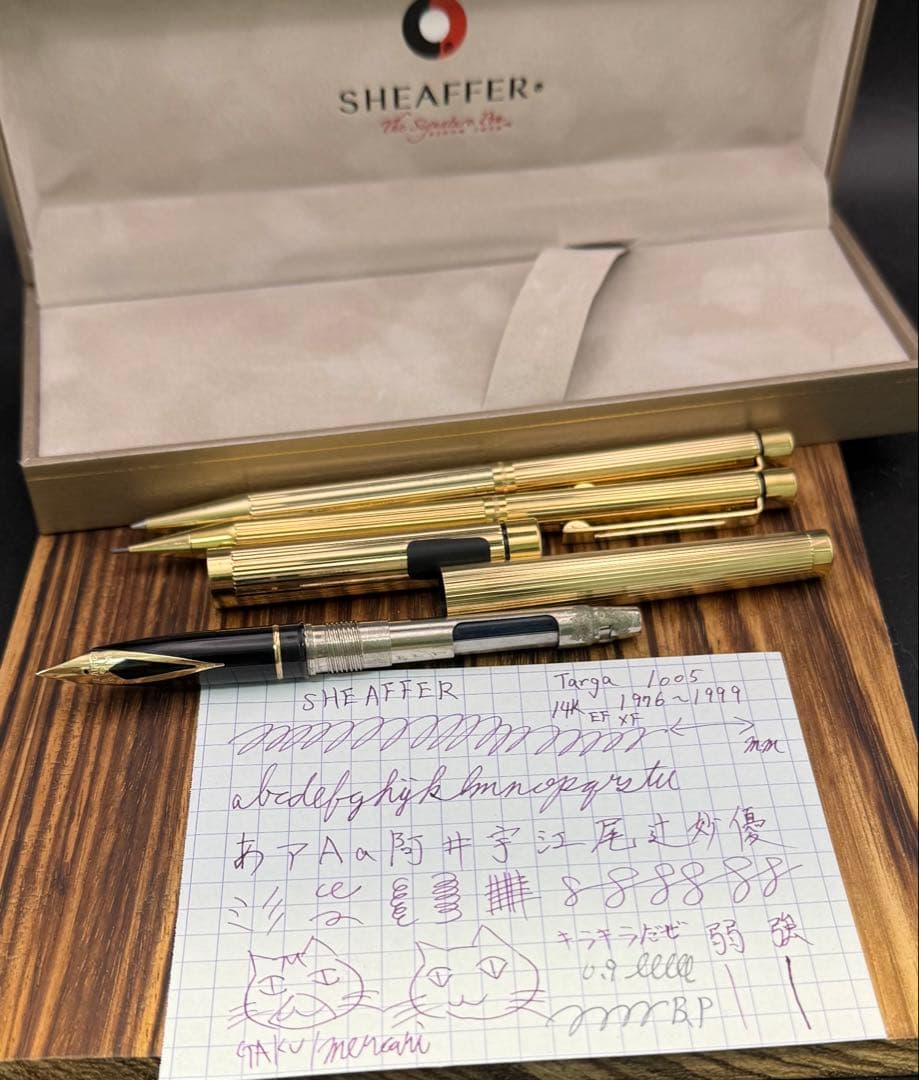 SHEAFFER®
The Signature Pen
SHEAFFER
Targa 1005
14K EF XF 1976~1999
mm
abcdefghijklmnopqrstu
あ ア A a 阿 井 宇 江 尾 辻 妙 優
キラキラだぜ 弱 強
0.9
BP
GAKU/mercari